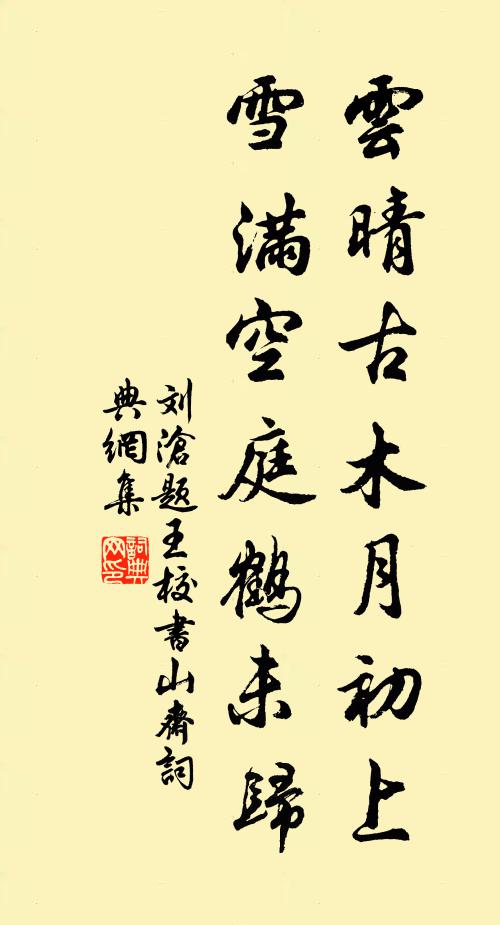 雲晴古木月初上
雪滿空庭鶴未歸
刘滄題王校書山齋詞
典網集
詞典
网印